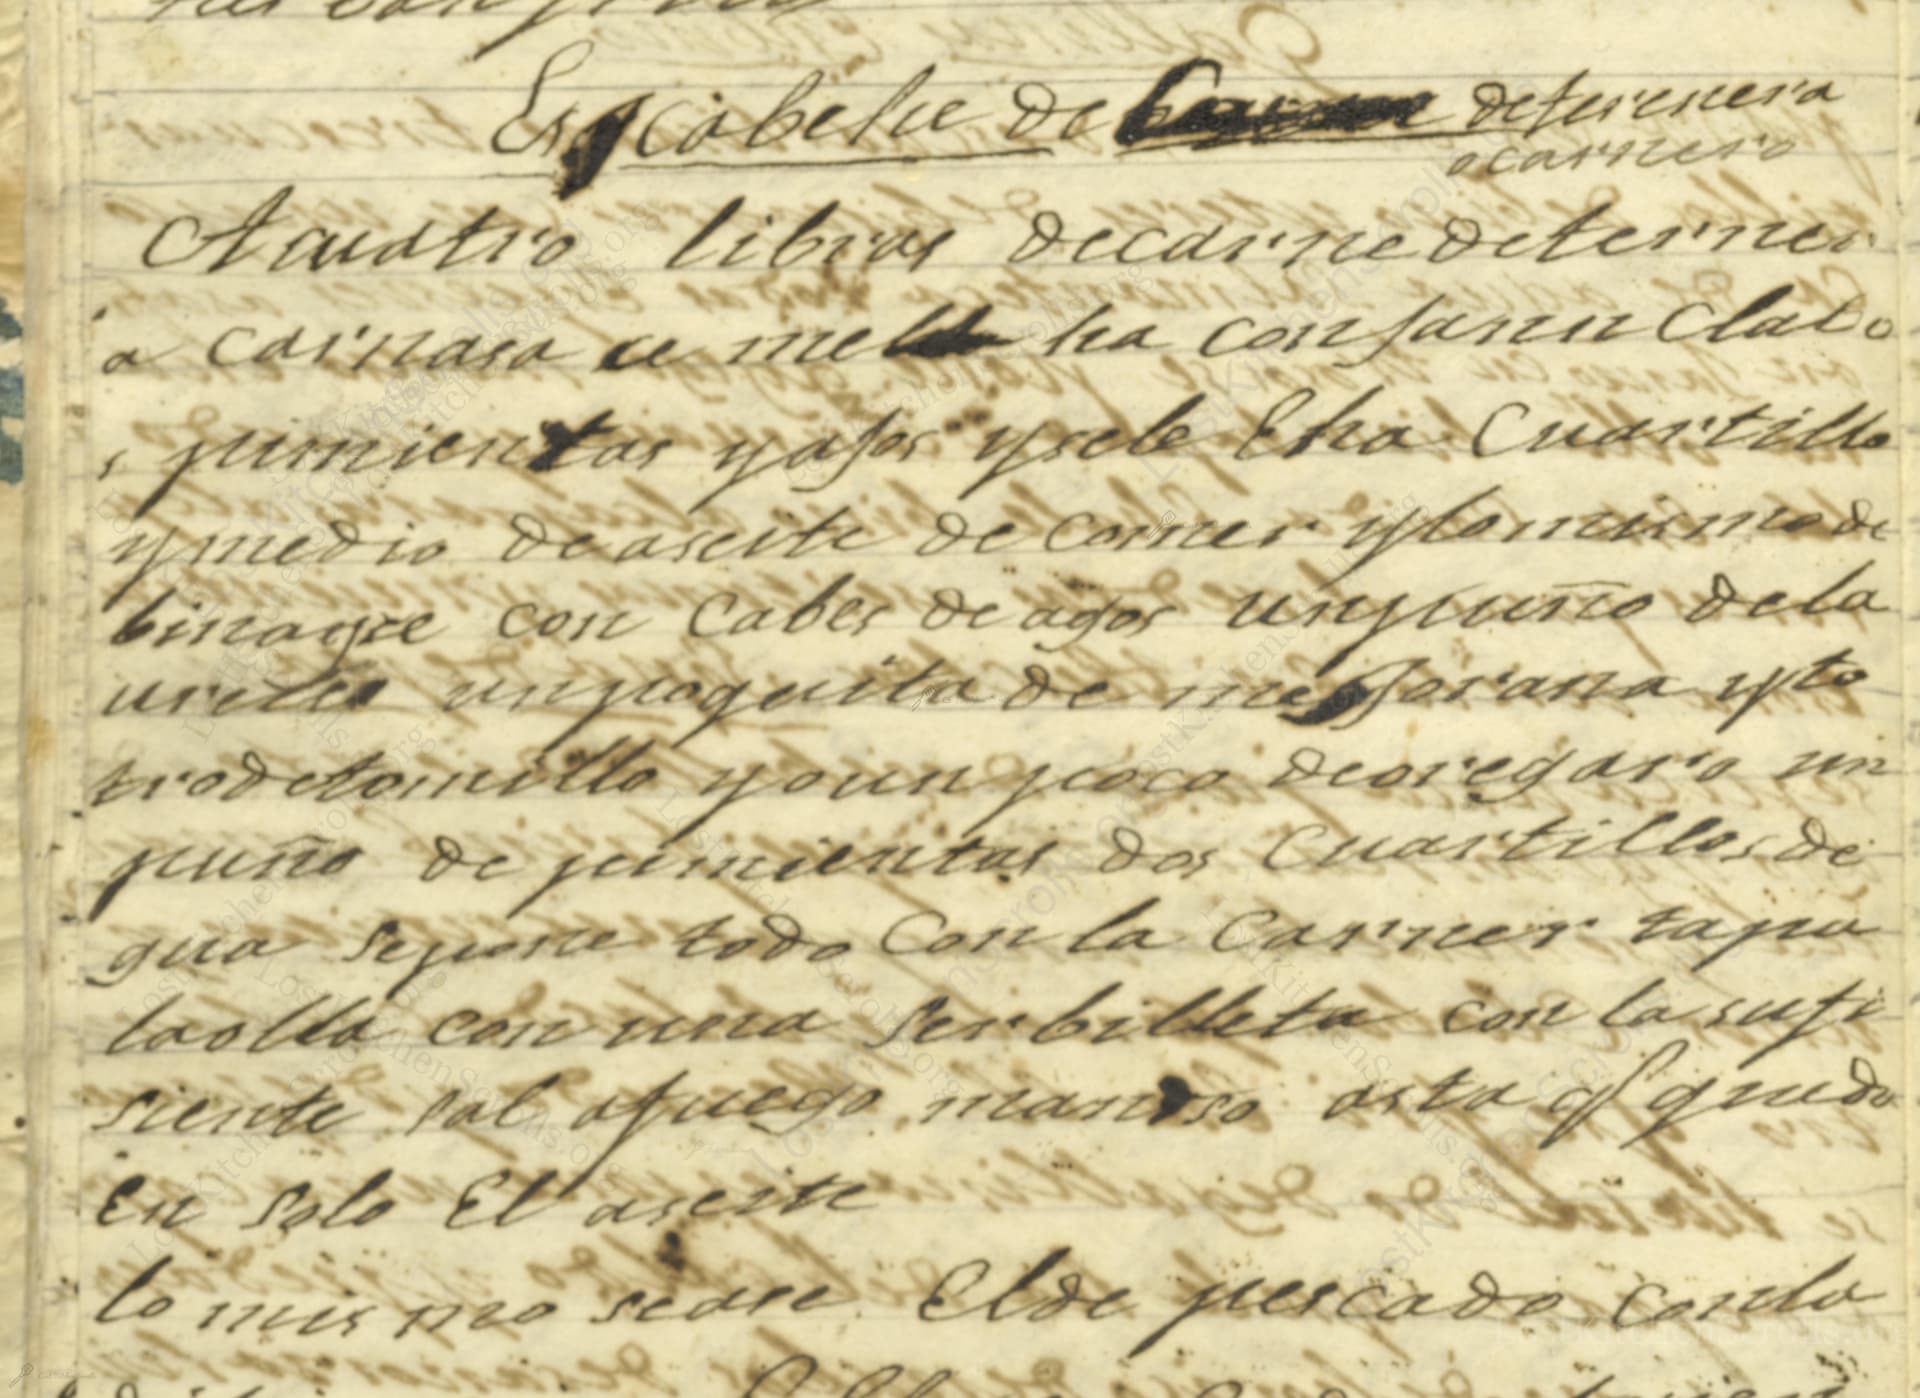 Escabehe de deterenera
o carnero
A cuatro libras decarne deterner
a carnasa me ha con Jamn Clabo
s pimientas y ajos y sele Eha Cuartillo
y medio de aseite de comer y lo mismo de
binagre con Cabes de agos un puño de la
urelles un poquita de mejorana y to
tro detomillo y o un poco deoregano un
puño de pimientas dos Cuartillos de
gua se pone todo Con la Carner tapa
la olla con una Serbilleta con la sufi
siente sal a fuego manso asta q quedo
En Solo El aseite
lo mismo se ase El de pescado conla